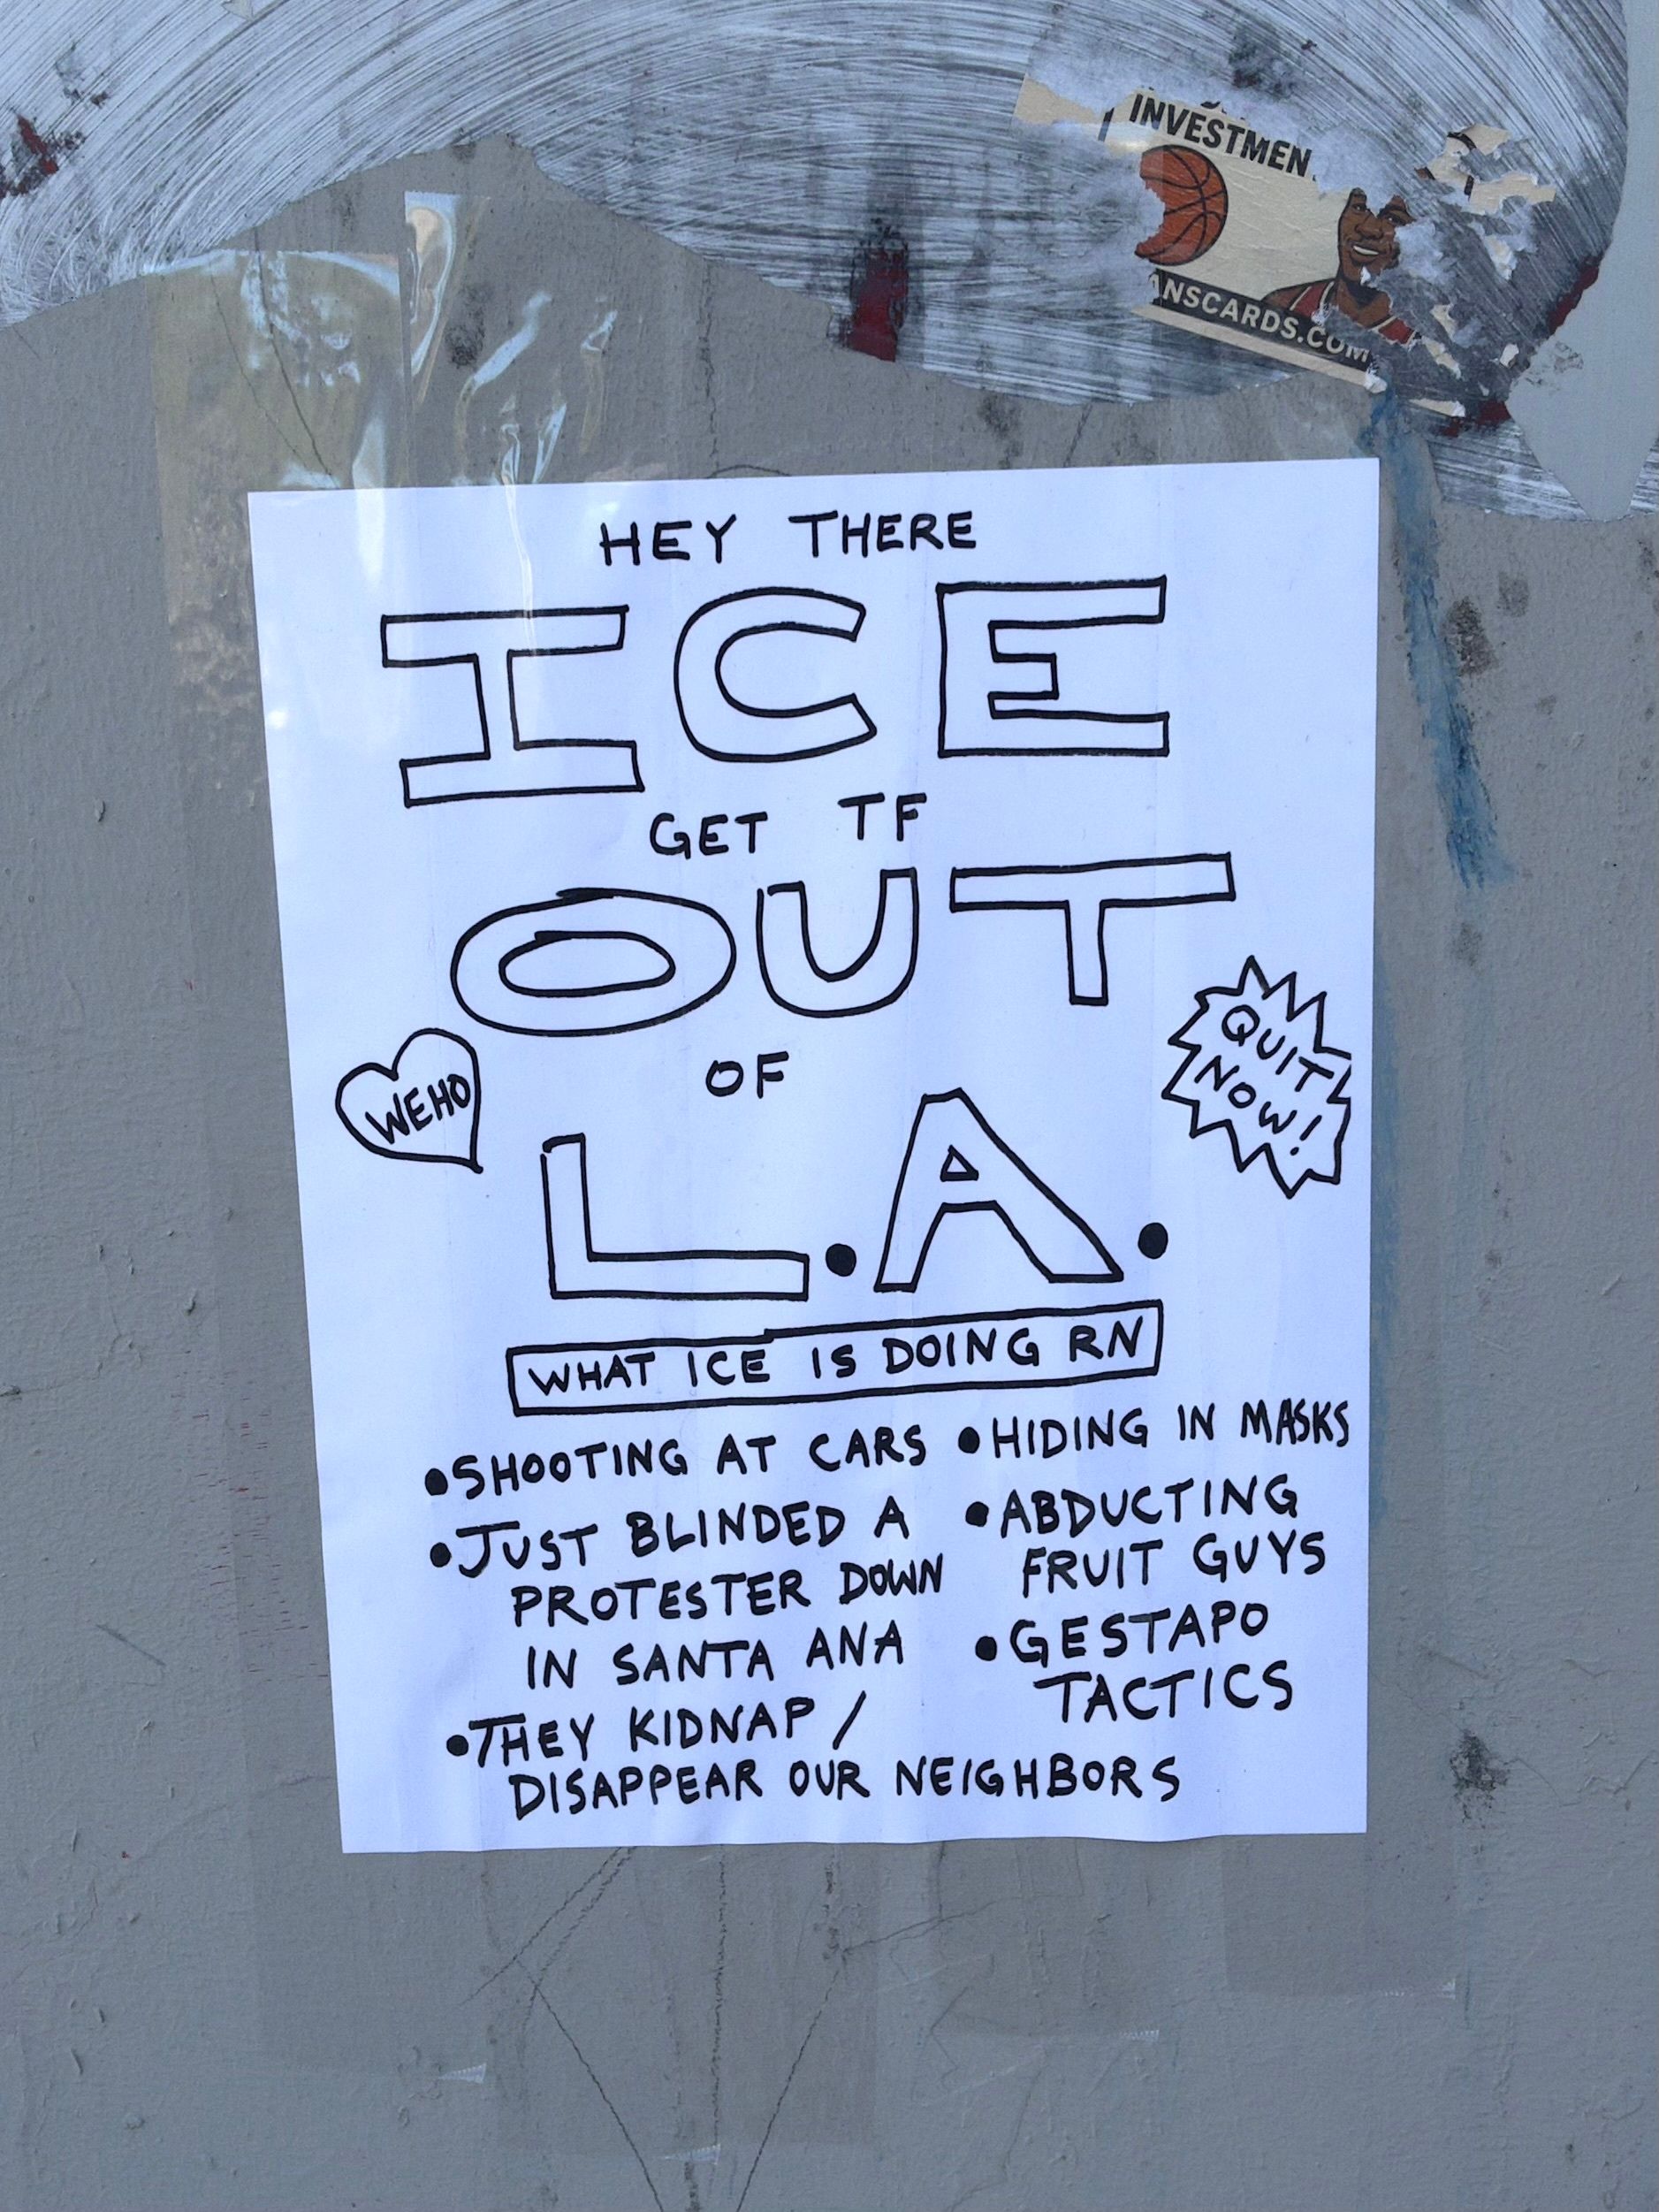 INVESTMEN
ANSCARDS.COM
HEY THERE
ICE
GET TF
OUT
OF
WEHO
QUIT
NOW!
L.A.
WHAT ICE IS DOING RN
•SHOOTING AT CARS
•JUST BLINDED A
PROTESTER DOWN
IN SANTA ANA
•THEY KIDNAP /
DISAPPEAR OUR NEIGHBORS
•HIDING IN MASKS
•ABDUCTING
FRUIT GUYS
•GESTAPO
TACTICS